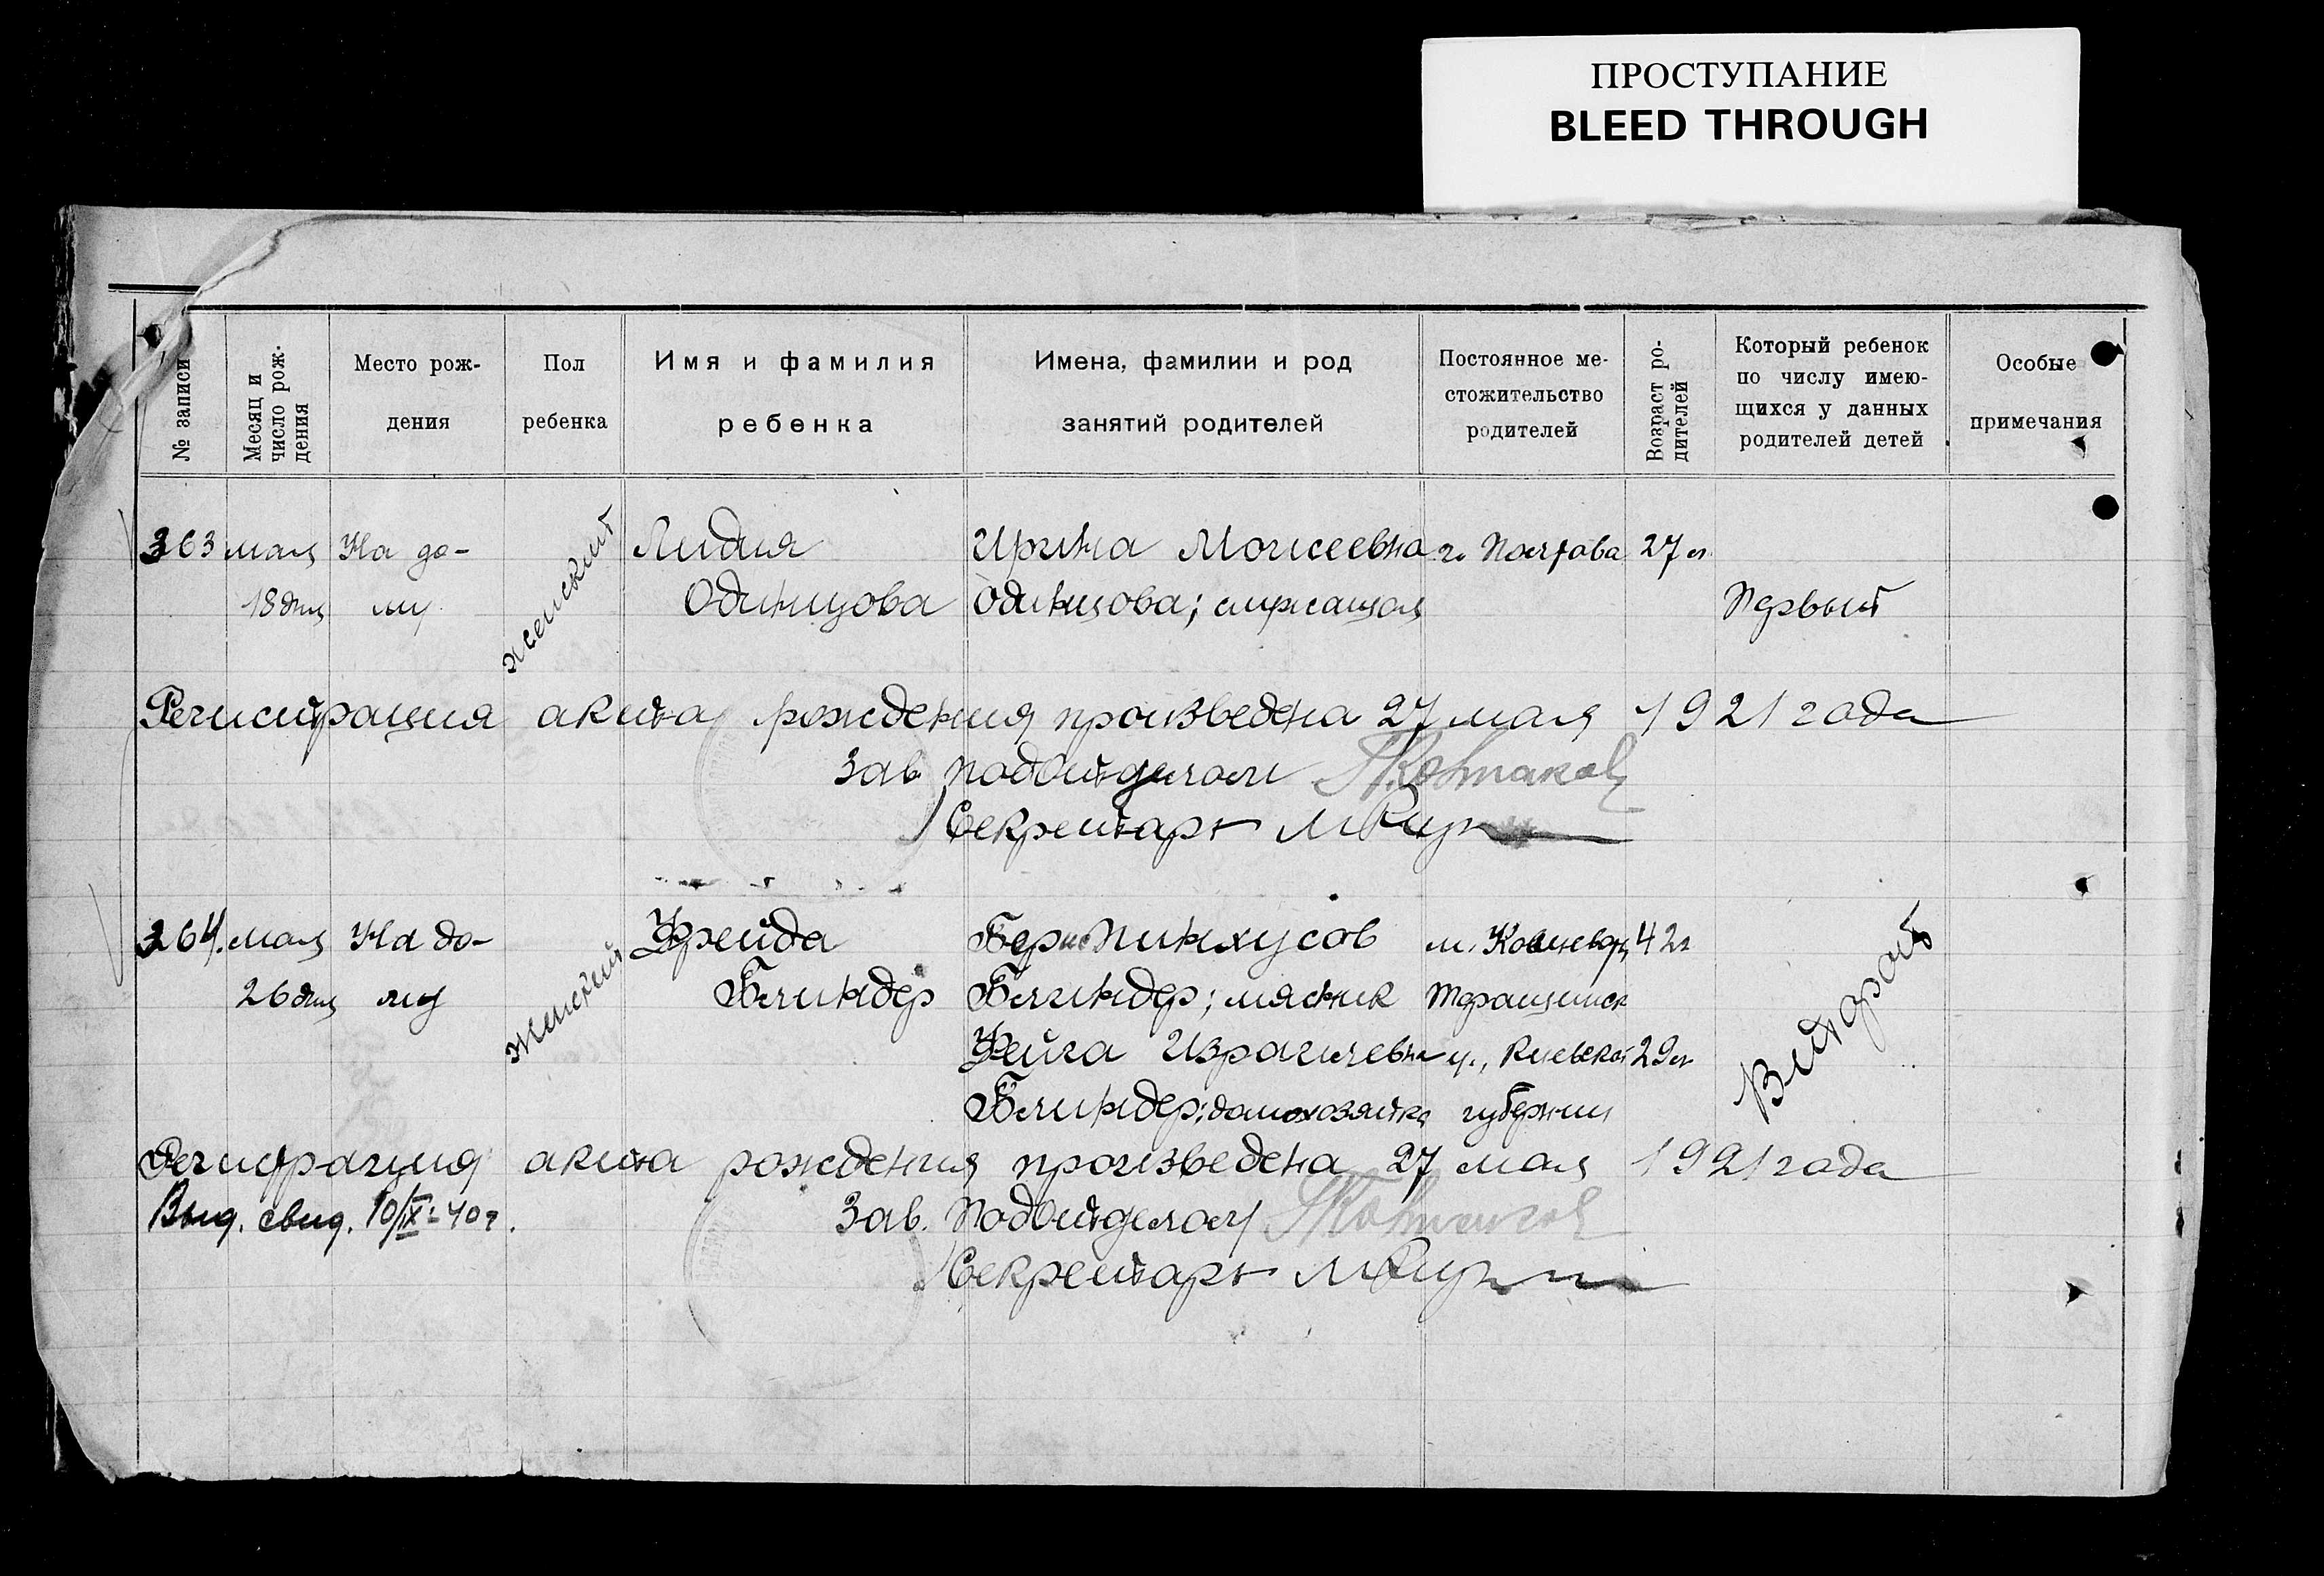 ПРОСТУПАНИЕ
BLEED THROUGH
№ записи
Месяц и
число рож-
дения
Место рож-
дения
Пол
ребенка
Имя и фамилия
ребенка
Имена, фамилии и род
занятий родителей
Постоянное ме-
стожительство
родителей
Возраст ро-
дителей
Который ребенок
по числу имею-
щихся у данных
родителей детей
Особые
примечания
363 мая На до- женский Лидия Ирина Моисеевна г. Полтава 27 л.
18 дня му Одинцова Одинцова; служащая Первый
Регистрация акта рождения произведена 27 мая 1921 года
Зав. подотделом
Секретарь
264. мая На до- женский Фрейда Бер Пинхусов м. 42 л. Второй
26 дня му Блиндер Блиндер; мясник
Фейга Израилевна у., Киевской 29 л.
Блиндер; домохозяйка губернии
Регистрация акта рождения произведена 27 мая 1921 года
Выд. свид. 10/IX-40 г. Зав. Подотделом
Секретарь